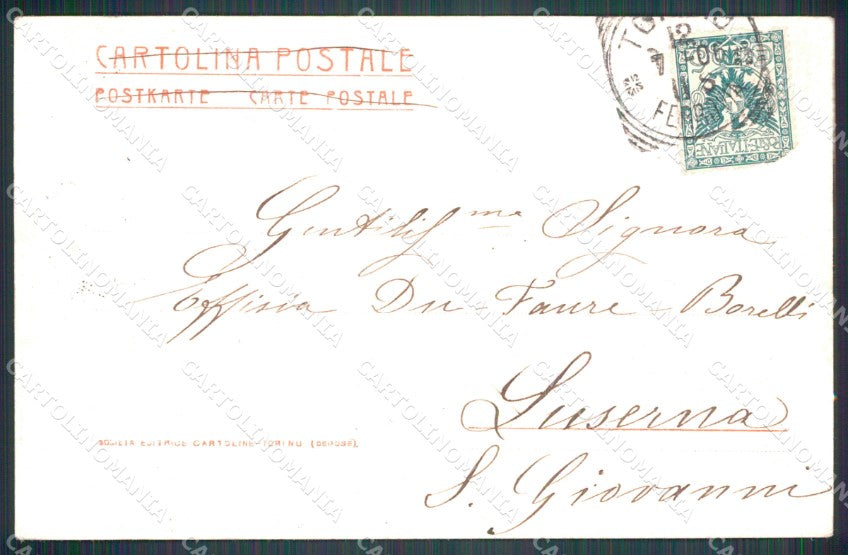 CARTOLINA POSTALE
POSTKARTE CARTE POSTALE
TORINO
12
FERROVIA
POSTE ITALIANE
Gentiliss.ma Signora
Effisia Du Faure Borelli
Luserna
S. Giovanni
SOCIETÀ EDITRICE CARTOLINE-TORINO (DEPOSE)
CARTOLINOMANIA